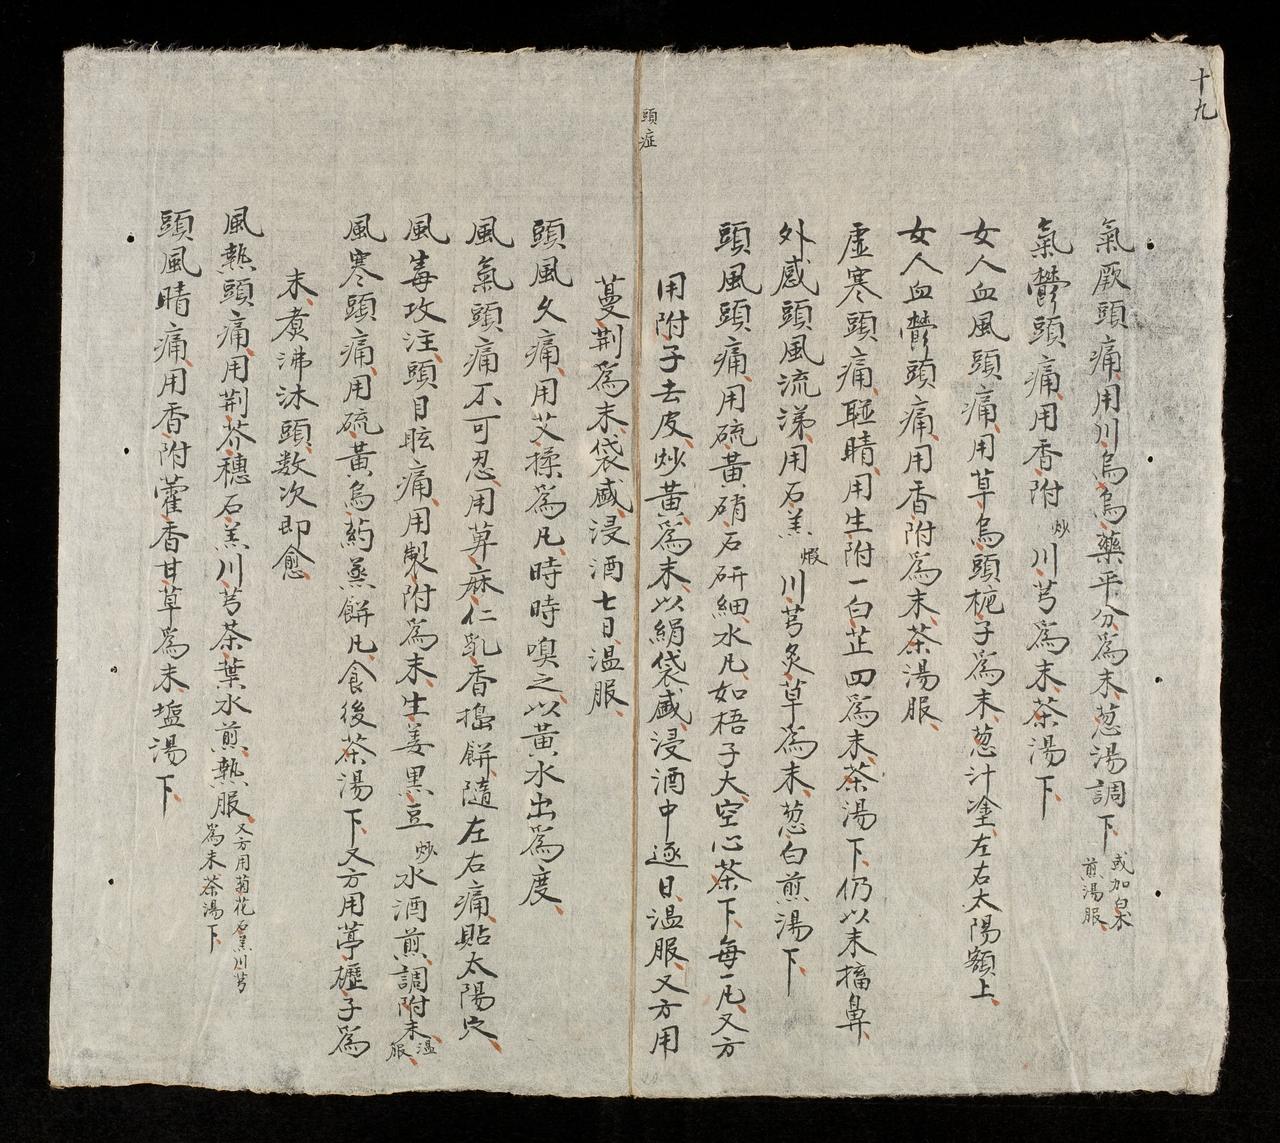 十九
氣厥頭痛用川烏烏藥平分為末葱湯調下或加白朮煎湯服
氣鬱頭痛用香附炒川芎為末茶湯下
女人血風頭痛用草烏頭梔子為末葱汁塗左右太陽額上
女人血鬱頭痛用香附為末茶湯服
虛寒頭痛睈睛用生附一白芷四為末茶湯下仍以末搐鼻
外感頭風流涕用石羔煆川芎炙草為末葱白煎湯下
頭風頭痛用硫黃硝石研細水凡如梧子大空心茶下每一凡又方
用附子去皮炒黃為末以絹袋盛浸酒中逐日溫服又方用
頭症
蔓荆為末袋盛浸酒七日溫服
頭風久痛用艾揉為凡時時嗅之以黃水出為度
風氣頭痛不可忍用萆麻仁乳香搗餅隨左右痛貼太陽穴
風毒攻注頭目眩痛用製附為末生姜黑豆炒水酒煎調附末溫服
風寒頭痛用硫黃烏葯蒸餅凡食後茶湯下又方用葶櫪子為
末煮沸沐頭数次即愈
風熱頭痛用荆芥穗石羔川芎茶葉水煎熱服又方用菊花石羔川芎為末茶湯下
頭風睛痛用香附藿香甘草為末塩湯下